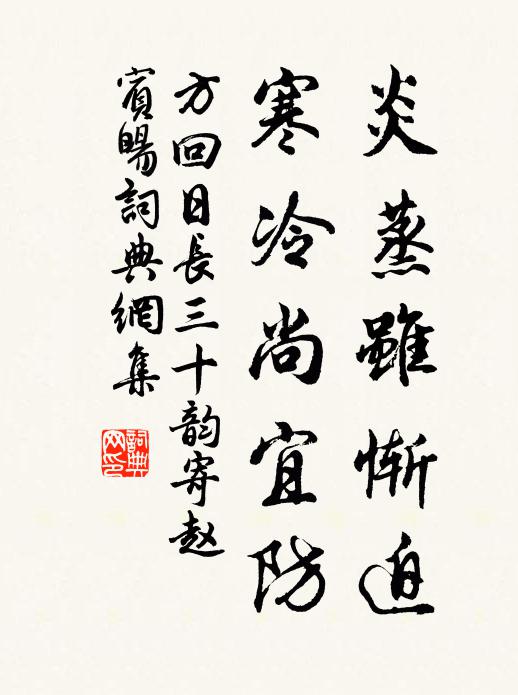 炎蒸雖慚迫
寒冷尚宜防
方回日長三十韵寄赵
賓暘詞典網集
詞典
网印